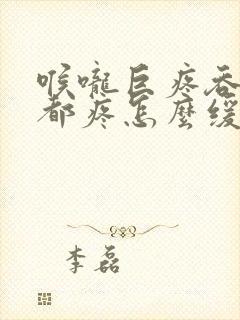 喉嚨巨疼吞
都疼怎麼緩
李磊